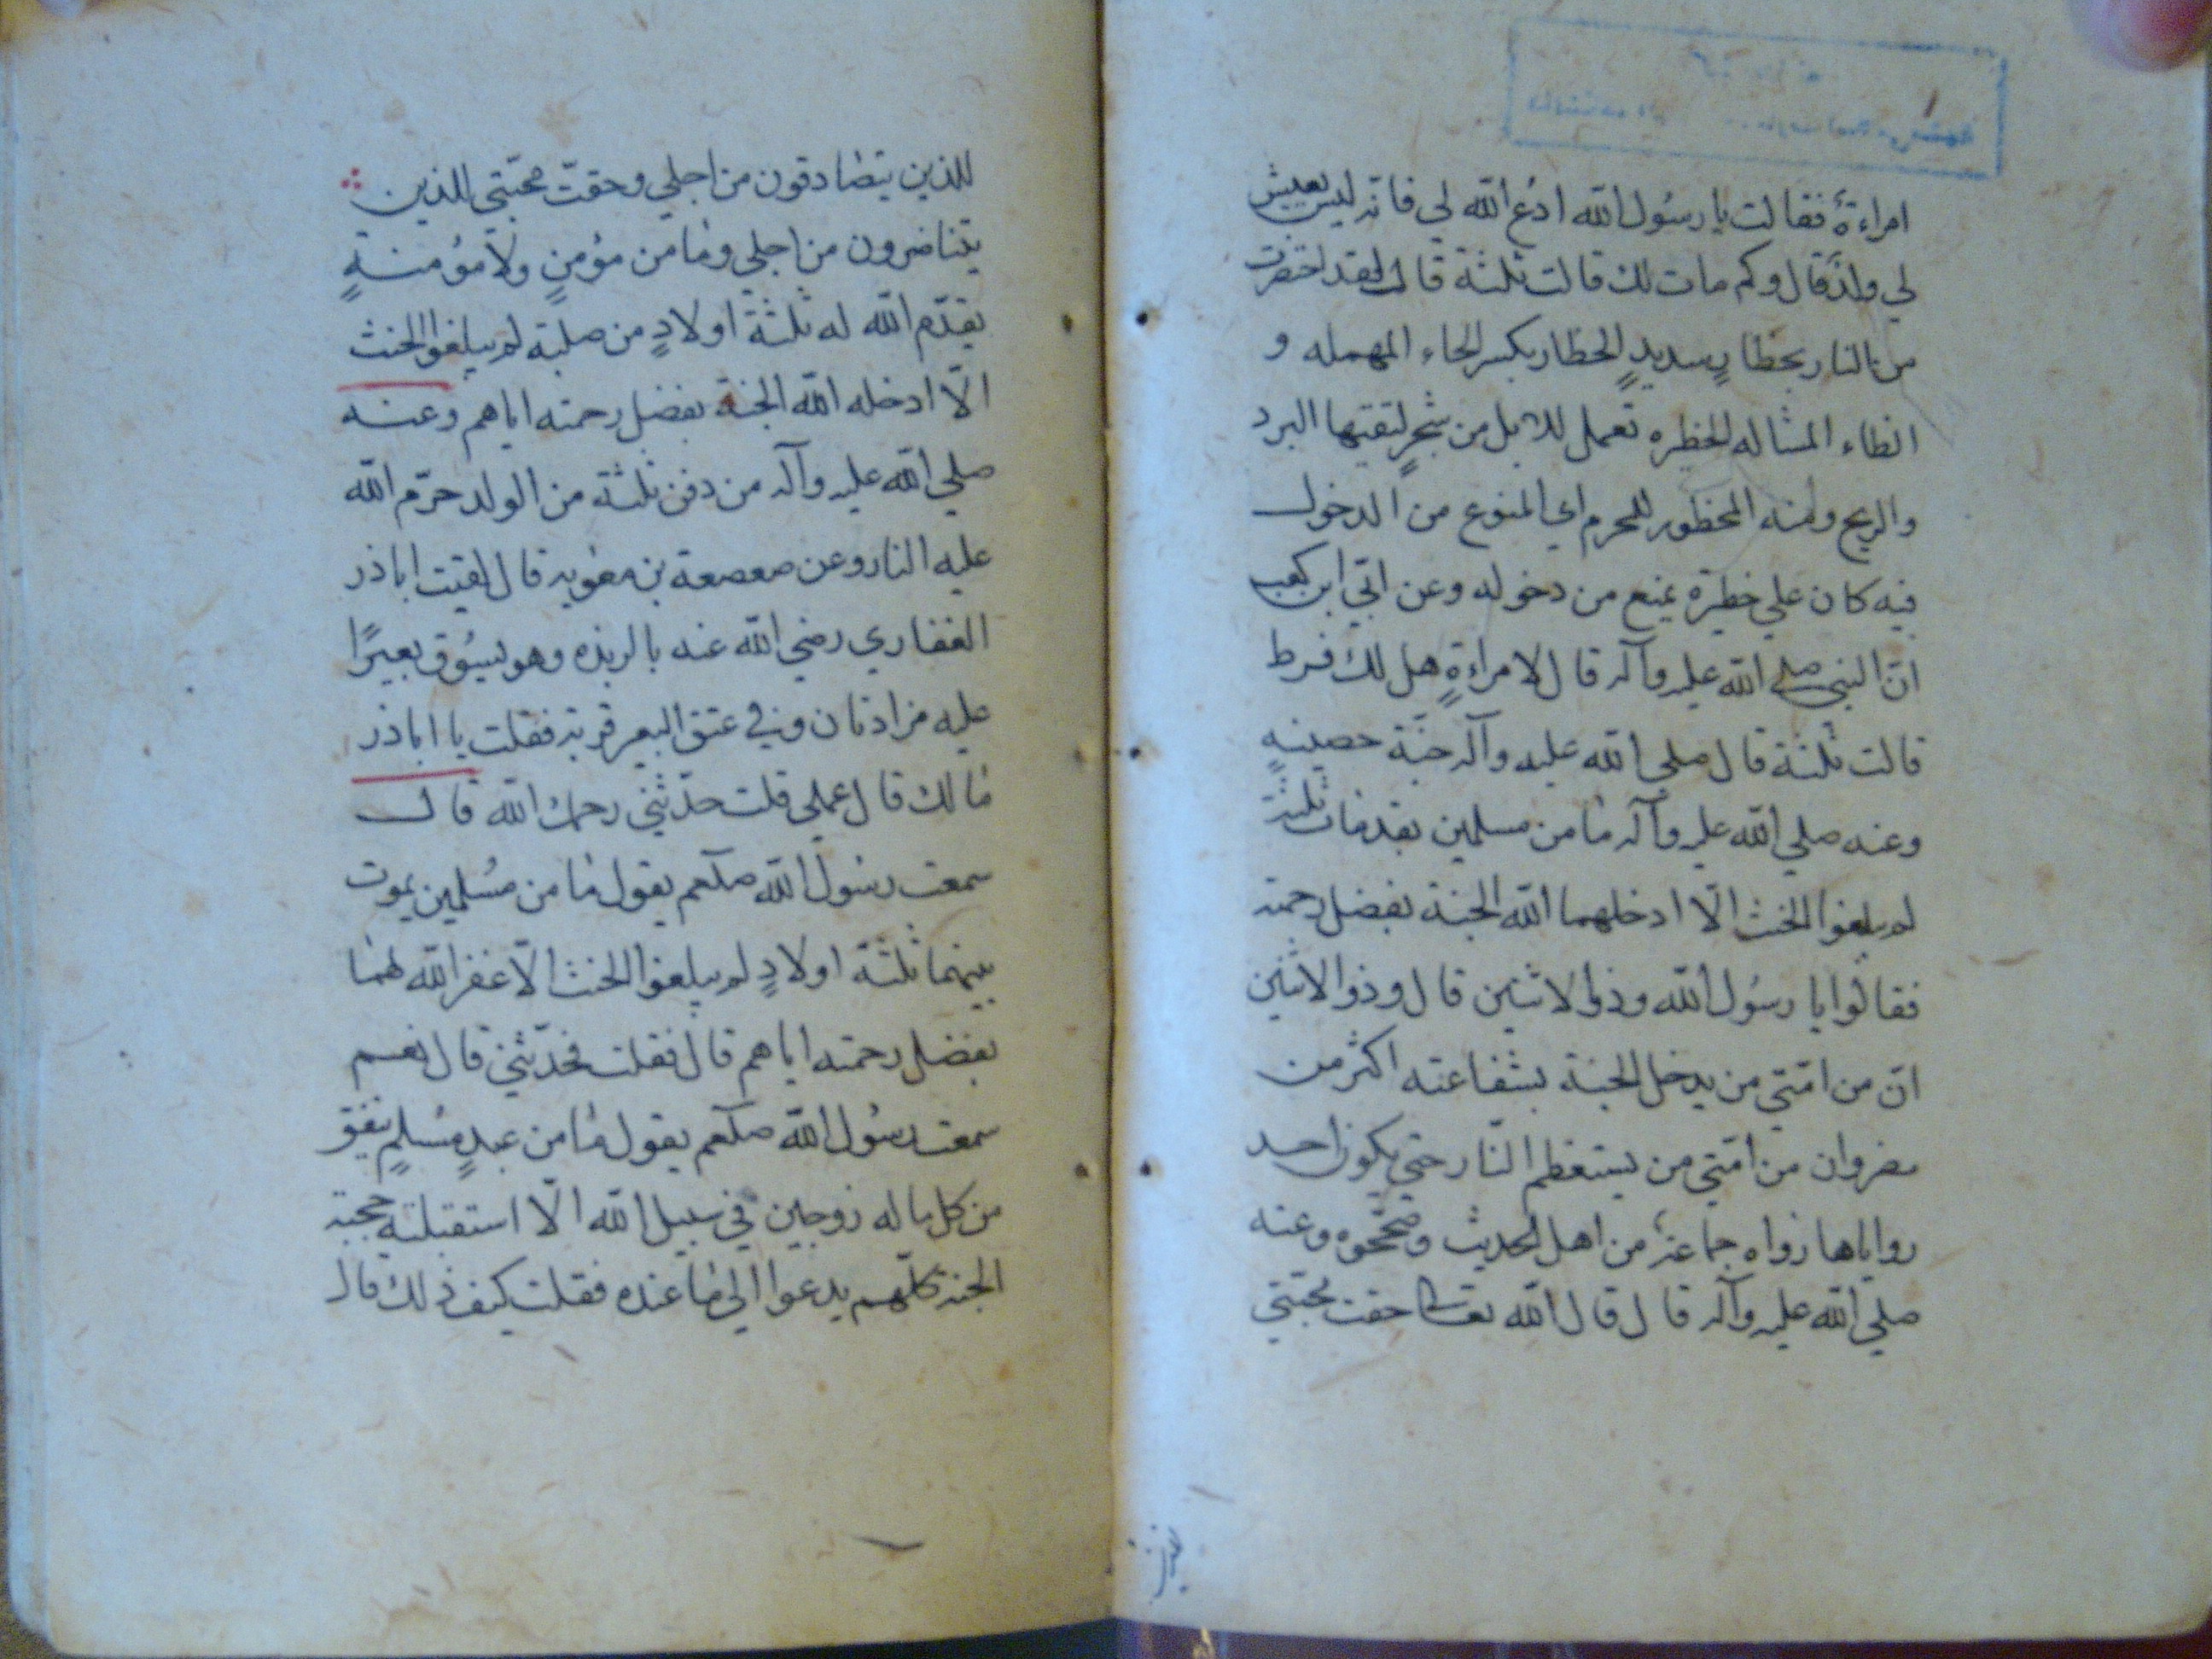 امراءة فقالت يا رسول الله ادع الله لي فانه ليس يعيش
لي ولد قال وكم مات لك قالت ثلثة قال لقد احتضرت
من النار بحظار سديد الحظار بكسر الحاء المهمله و
الظاء المشاله الحظره تعمل للابل من شجر لتقيها البرد
والريح ومنه المحظور للمحرم اي الممنوع من الدخول
فيه كان علي خطيرة يمنع من دخوله وعن ابي ابن كعب
ان النبي صلى الله عليه وآله قال لامراءة هل لك فرط
قالت ثلثة قال صلي الله عليه وآله جنة حصينة
وعنه صلي الله عليه وآله ما من مسلمين يقدمان ثلثة
لم يبلغوا الحنث الا ادخلهما الله الجنة بفضل رحمته
فقالوا يا رسول الله وذوا لاثنين قال وذوا الاثنين
ان من امتي من يدخل الجنة بشفاعته اكثر من
مضر وان من امتي من يستعظم النار حتي يكون احد
رواياها رواه جماعة من اهل الحديث وصححوه وعنه
صلي الله عليه وآله قال قال الله تعالى حقت محبتي
للذين
للذين يتصادقون من اجلي وحقت محبتي للذين
يتناصرون من اجلي وما من مؤمن ولا مؤمنة
يقدم الله له ثلثة اولاد من صلبه لم يبلغوا الحنث
الا ادخله الله الجنة بفضل رحمته اياهم وعنه
صلي الله عليه وآله من دفن ثلثة من الولد حرم الله
عليه النار وعن صعصعة بن معويه قال لقيت اباذر
الغفاري رضي الله عنه بالربذه وهو يسوق بعيرا
عليه مزادتان وفي عنق البعير قربة فقلت يا اباذر
مالك قال عملي قلت حدثني رحمك الله قال
سمعت رسول الله صلعم يقول ما من مسلمين يموت
بينهما ثلثة اولاد لم يبلغوا الحنث الا غفر الله لهما
بفضل رحمته اياهم قال فقلت فحدثني قال نعم
سمعت رسول الله صلعم يقول ما من عبد مسلم ينفق
من كل ماله زوجين في سبيل الله الا استقبلته حجبة
الجنة كلهم يدعوا الي ما عنده فقلت كيف ذلك قال